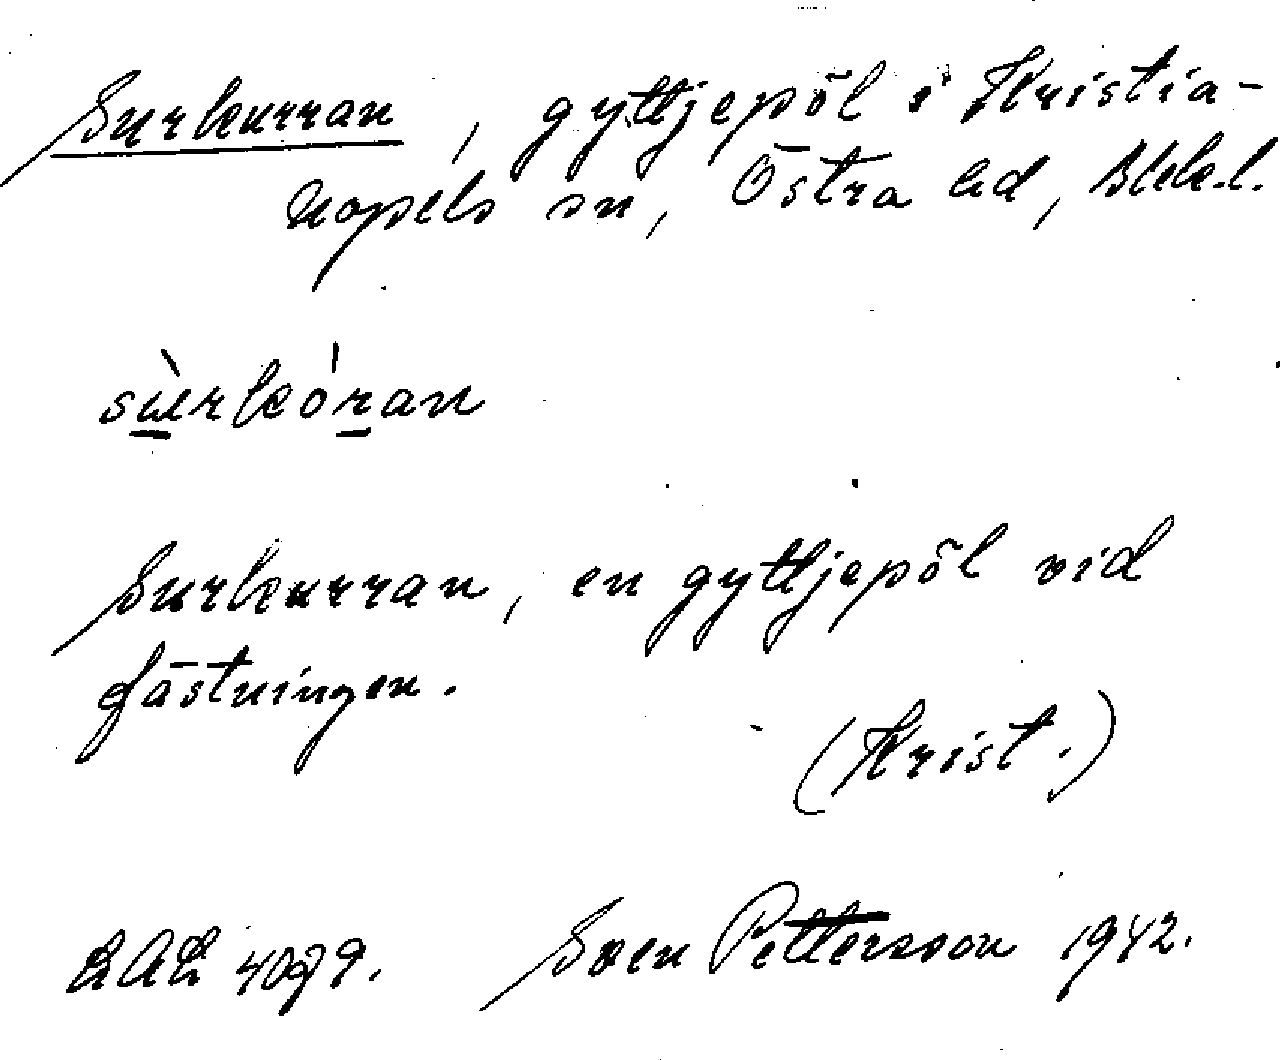 Surkurran, gyttjepöl i Kristia-
nopels sn, Östra hd, Blek.l.
sùrkóran
Surkurran, en gyttjepöl vid
fästningen.
(Krist.)
LAL 4079. Sven Pettersson 1942.